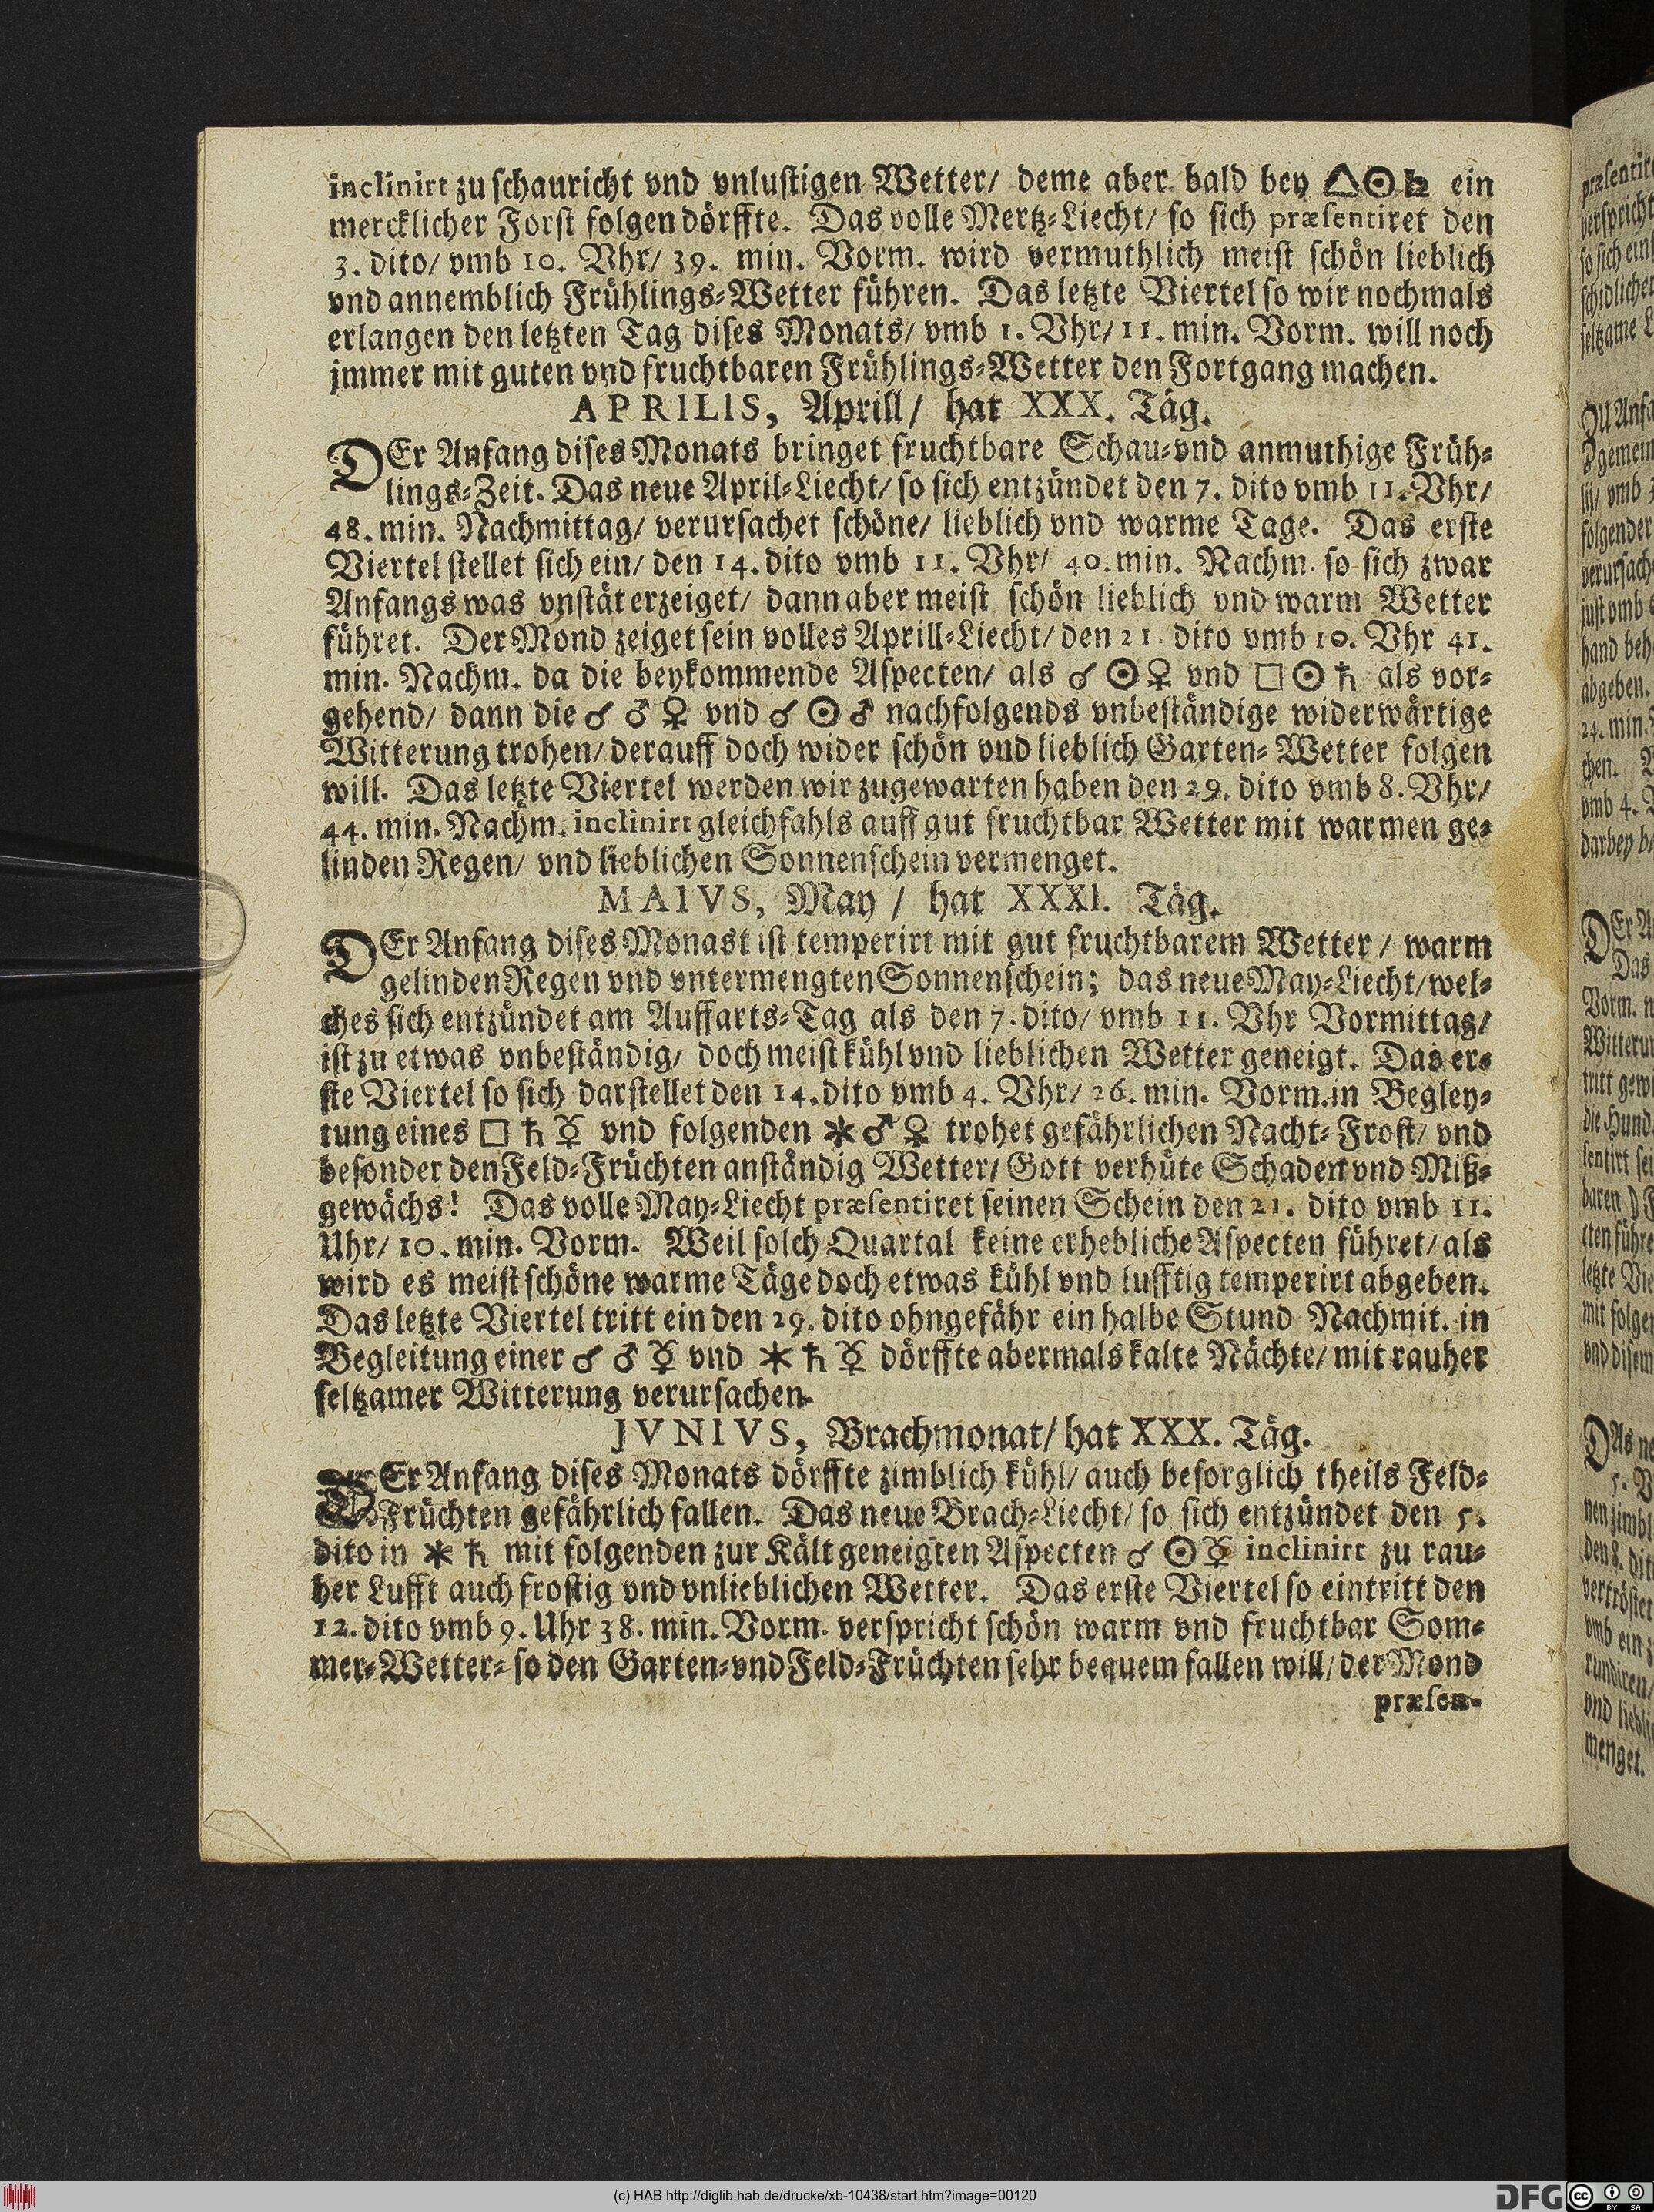 inclinirt zu schauricht vnd vnlustigen Wetter/ deme aber bald bey △☉♄ ein
mercklicher Forst folgen dörffte. Das volle Mertz-Liecht/ so sich præsentiret den
3. dito/ vmb 10. Vhr/ 39. min. Vorm. wird vermuthlich meist schön lieblich
vnd annemblich Frühlings-Wetter führen. Das letzte Viertel so wir nochmals
erlangen den letzten Tag dises Monats/ vmb 1. Vhr/ 11. min. Vorm. will noch
jmmer mit guten vnd fruchtbaren Frühlings-Wetter den Fortgang machen.
APRILIS, Aprill/ hat XXX. Täg.
DEr Anfang dises Monats bringet fruchtbare Schau-vnd anmuthige Früh-
lings-Zeit. Das neue April-Liecht/ so sich entzündet den 7. dito vmb 11. Vhr/
48. min. Nachmittag/ verursachet schöne/ lieblich vnd warme Tage. Das erste
Viertel stellet sich ein/ den 14. dito vmb 11. Vhr/ 40. min. Nachm. so sich zwar
Anfangs was vnstät erzeiget/ dann aber meist schön lieblich vnd warm Wetter
führet. Der Mond zeiget sein volles Aprill-Liecht/ den 21. dito vmb 10. Vhr 41.
min. Nachm. da die beykommende Aspecten/ als ☌ ☉ ♀ vnd □ ☉ ♄ als vor-
gehend/ dann die ☌ ♂ ♀ vnd ☌ ☉ ♂ nachfolgends vnbeständige widerwärtige
Witterung trohen/ derauff doch wider schön vnd lieblich Garten-Wetter folgen
will. Das letzte Viertel werden wir zugewarten haben den 29. dito vmb 8. Vhr/
44. min. Nachm. inclinirt gleichfahls auff gut fruchtbar Wetter mit warmen ge-
linden Regen/ vnd lieblichen Sonnenschein vermenget.
MAIVS, May / hat XXXI. Täg.
DEr Anfang dises Monast ist temperirt mit gut fruchtbarem Wetter / warm
gelinden Regen vnd vntermengten Sonnenschein; das neue May-Liecht/ wel-
ches sich entzündet am Auffarts-Tag als den 7. dito/ vmb 11. Vhr Vormittag/
ist zu etwas vnbeständig/ doch meist kühl vnd lieblichen Wetter geneigt. Das er-
ste Viertel so sich darstellet den 14. dito vmb 4. Vhr/ 26. min. Vorm. in Begley-
tung eines □ ♄ ☿ vnd folgenden ⚹ ♂ ♀ trohet gefährlichen Nacht-Frost/ vnd
besonder den Feld-Früchten anständig Wetter/ Gott verhüte Schaden vnd Miß-
gewächs! Das volle May-Liecht præsentiret seinen Schein den 21. dito vmb 11.
Uhr/ 10. min. Vorm. Weil solch Quartal keine erhebliche Aspecten führet/ als
wird es meist schöne warme Täge doch etwas kühl vnd lufftig temperirt abgeben.
Das letzte Viertel tritt ein den 29. dito ohngefähr ein halbe Stund Nachmit. in
Begleitung einer ☌ ♂ ☿ vnd ⚹ ♄ ☿ dörffte abermals kalte Nächte/ mit rauher
seltzamer Witterung verursachen.
JVNIVS, Brachmonat/ hat XXX. Täg.
DEr Anfang dises Monats dörffte zimblich kühl/ auch besorglich theils Feld-
Früchten gefährlich fallen. Das neue Brach-Liecht/ so sich entzündet den 5.
dito in ⚹ ♄ mit folgenden zur Kält geneigten Aspecten ☌ ☉ ☿ inclinirt zu rau-
her Lufft auch frostig vnd vnlieblichen Wetter. Das erste Viertel so eintritt den
12. dito vmb 9. Uhr 38. min. Vorm. verspricht schön warm vnd fruchtbar Som-
mer-Wetter- so den Garten-vnd Feld-Früchten sehr bequem fallen will/ der Mond
præsen-
(c) HAB http://diglib.hab.de/drucke/xb-10438/start.htm?image=00120
DFG